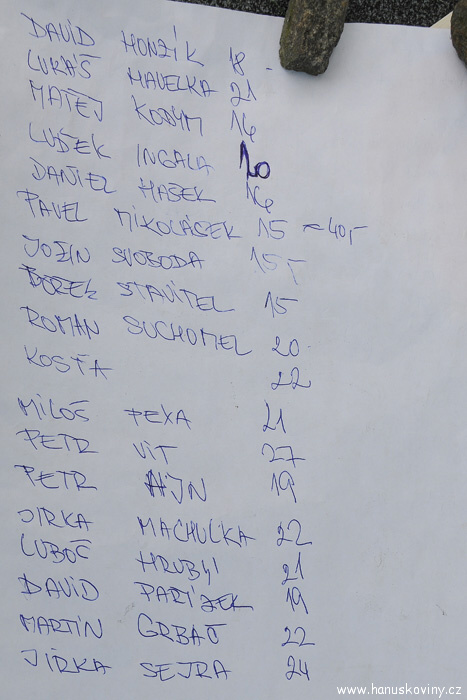 DAVID HONZÍK 18 -
LUKÁŠ HAVELKA 21
MATĚJ KODYM 14
LUDĚK INGALA 20
DANIEL HAŠEK 14
PAVEL MIKOLÁŠEK 15 = 40,-
JOŽIN SVOBODA 15,-
BOŘEK STAVITEL 15
ROMAN SUCHOMEL 20
KOSŤA 22
MILOŠ PEXA 21
PETR VÍT 27
PETR HÁJN 19
JIRKA MACHULKA 22
LUBOŠ HRUBÝ 21
DAVID PAŘÍZEK 19
MARTIN GRBAČ 22
JIŘKA SEJRA 24
www.hanuskoviny.cz